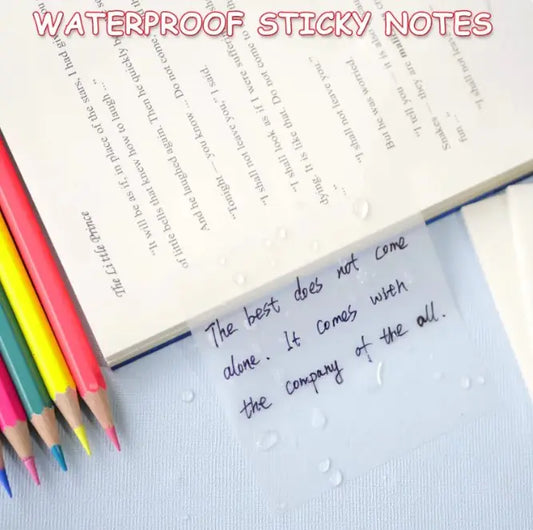 WATERPROOF STICKY NOTES
The Little Prince
"It will be as if, in place of the stars, I had giv
of little bells that knew how to laugh ..."
And he laughed again. Then he quickly b
"Tonight — you know ... Do not come
"I shall not leave you," I said.
"I shall look as if I were suffering
dying. It is like that. Do not come to
"I shall not leave you."
But he was worried.
"I tell you — it is also
Snakes — they are mali
fun ..."
"I shall not leave
The best does not come
alone. It comes with
the company of the all.